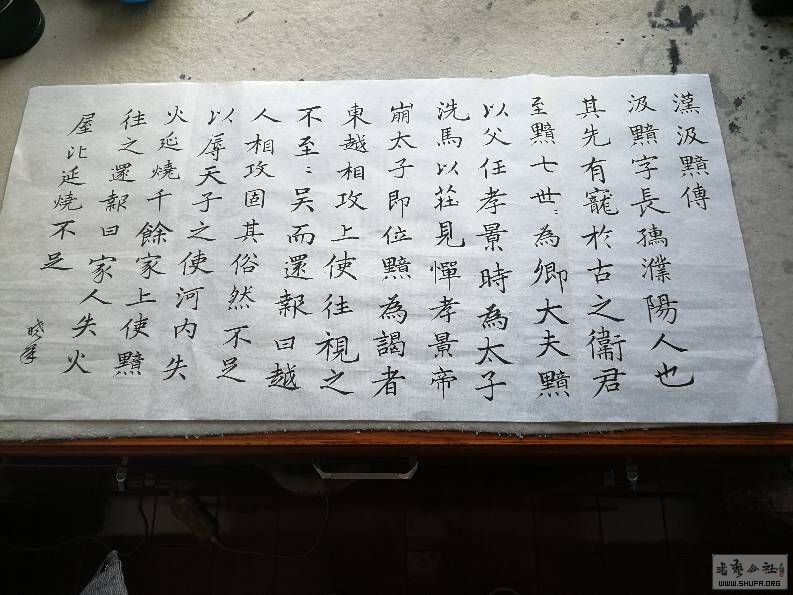 漢汲黯傳
汲黯字長孺濮陽人也
其先有寵於古之衛君
至黯七世:為卿大夫黯
以父任孝景時為太子
洗馬以莊見憚孝景帝
崩太子即位黯為謁者
東越相攻上使往視之
不至:吳而還報曰越
人相攻固其俗然不足
以辱天子之使河內失
火延燒千餘家上使黯
往之還報曰家人失火
屋比延燒不足
書艺公社
WWW.SHUFA.ORG